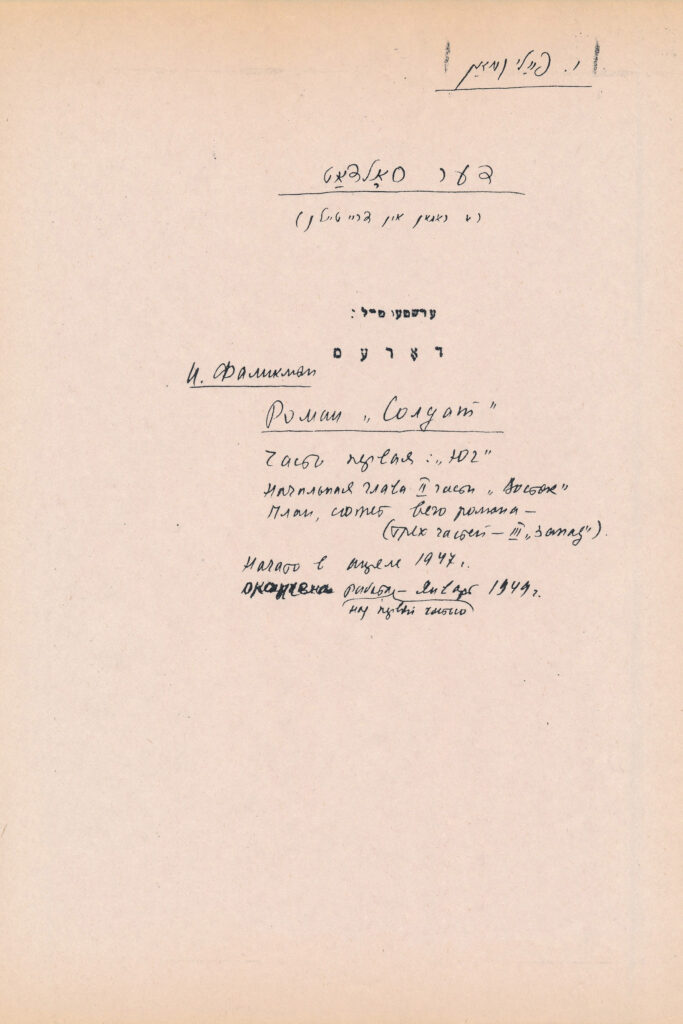 י. פֿאַליקמאַן
דער סאָלדאַט
(אַ ראָמאַן אין דרײַ טײלן)
ערשטער טייל:
דאָרעם
И. Фаликман
Роман „Солдат"
Часть первая: „Юг"
Начальная глава II части „Восток"
План, сюжет всего романа —
(трех частей — III „Запад").
Начато в апреле 1947 г.
окончена работа — январь 1949 г.
над первой частью